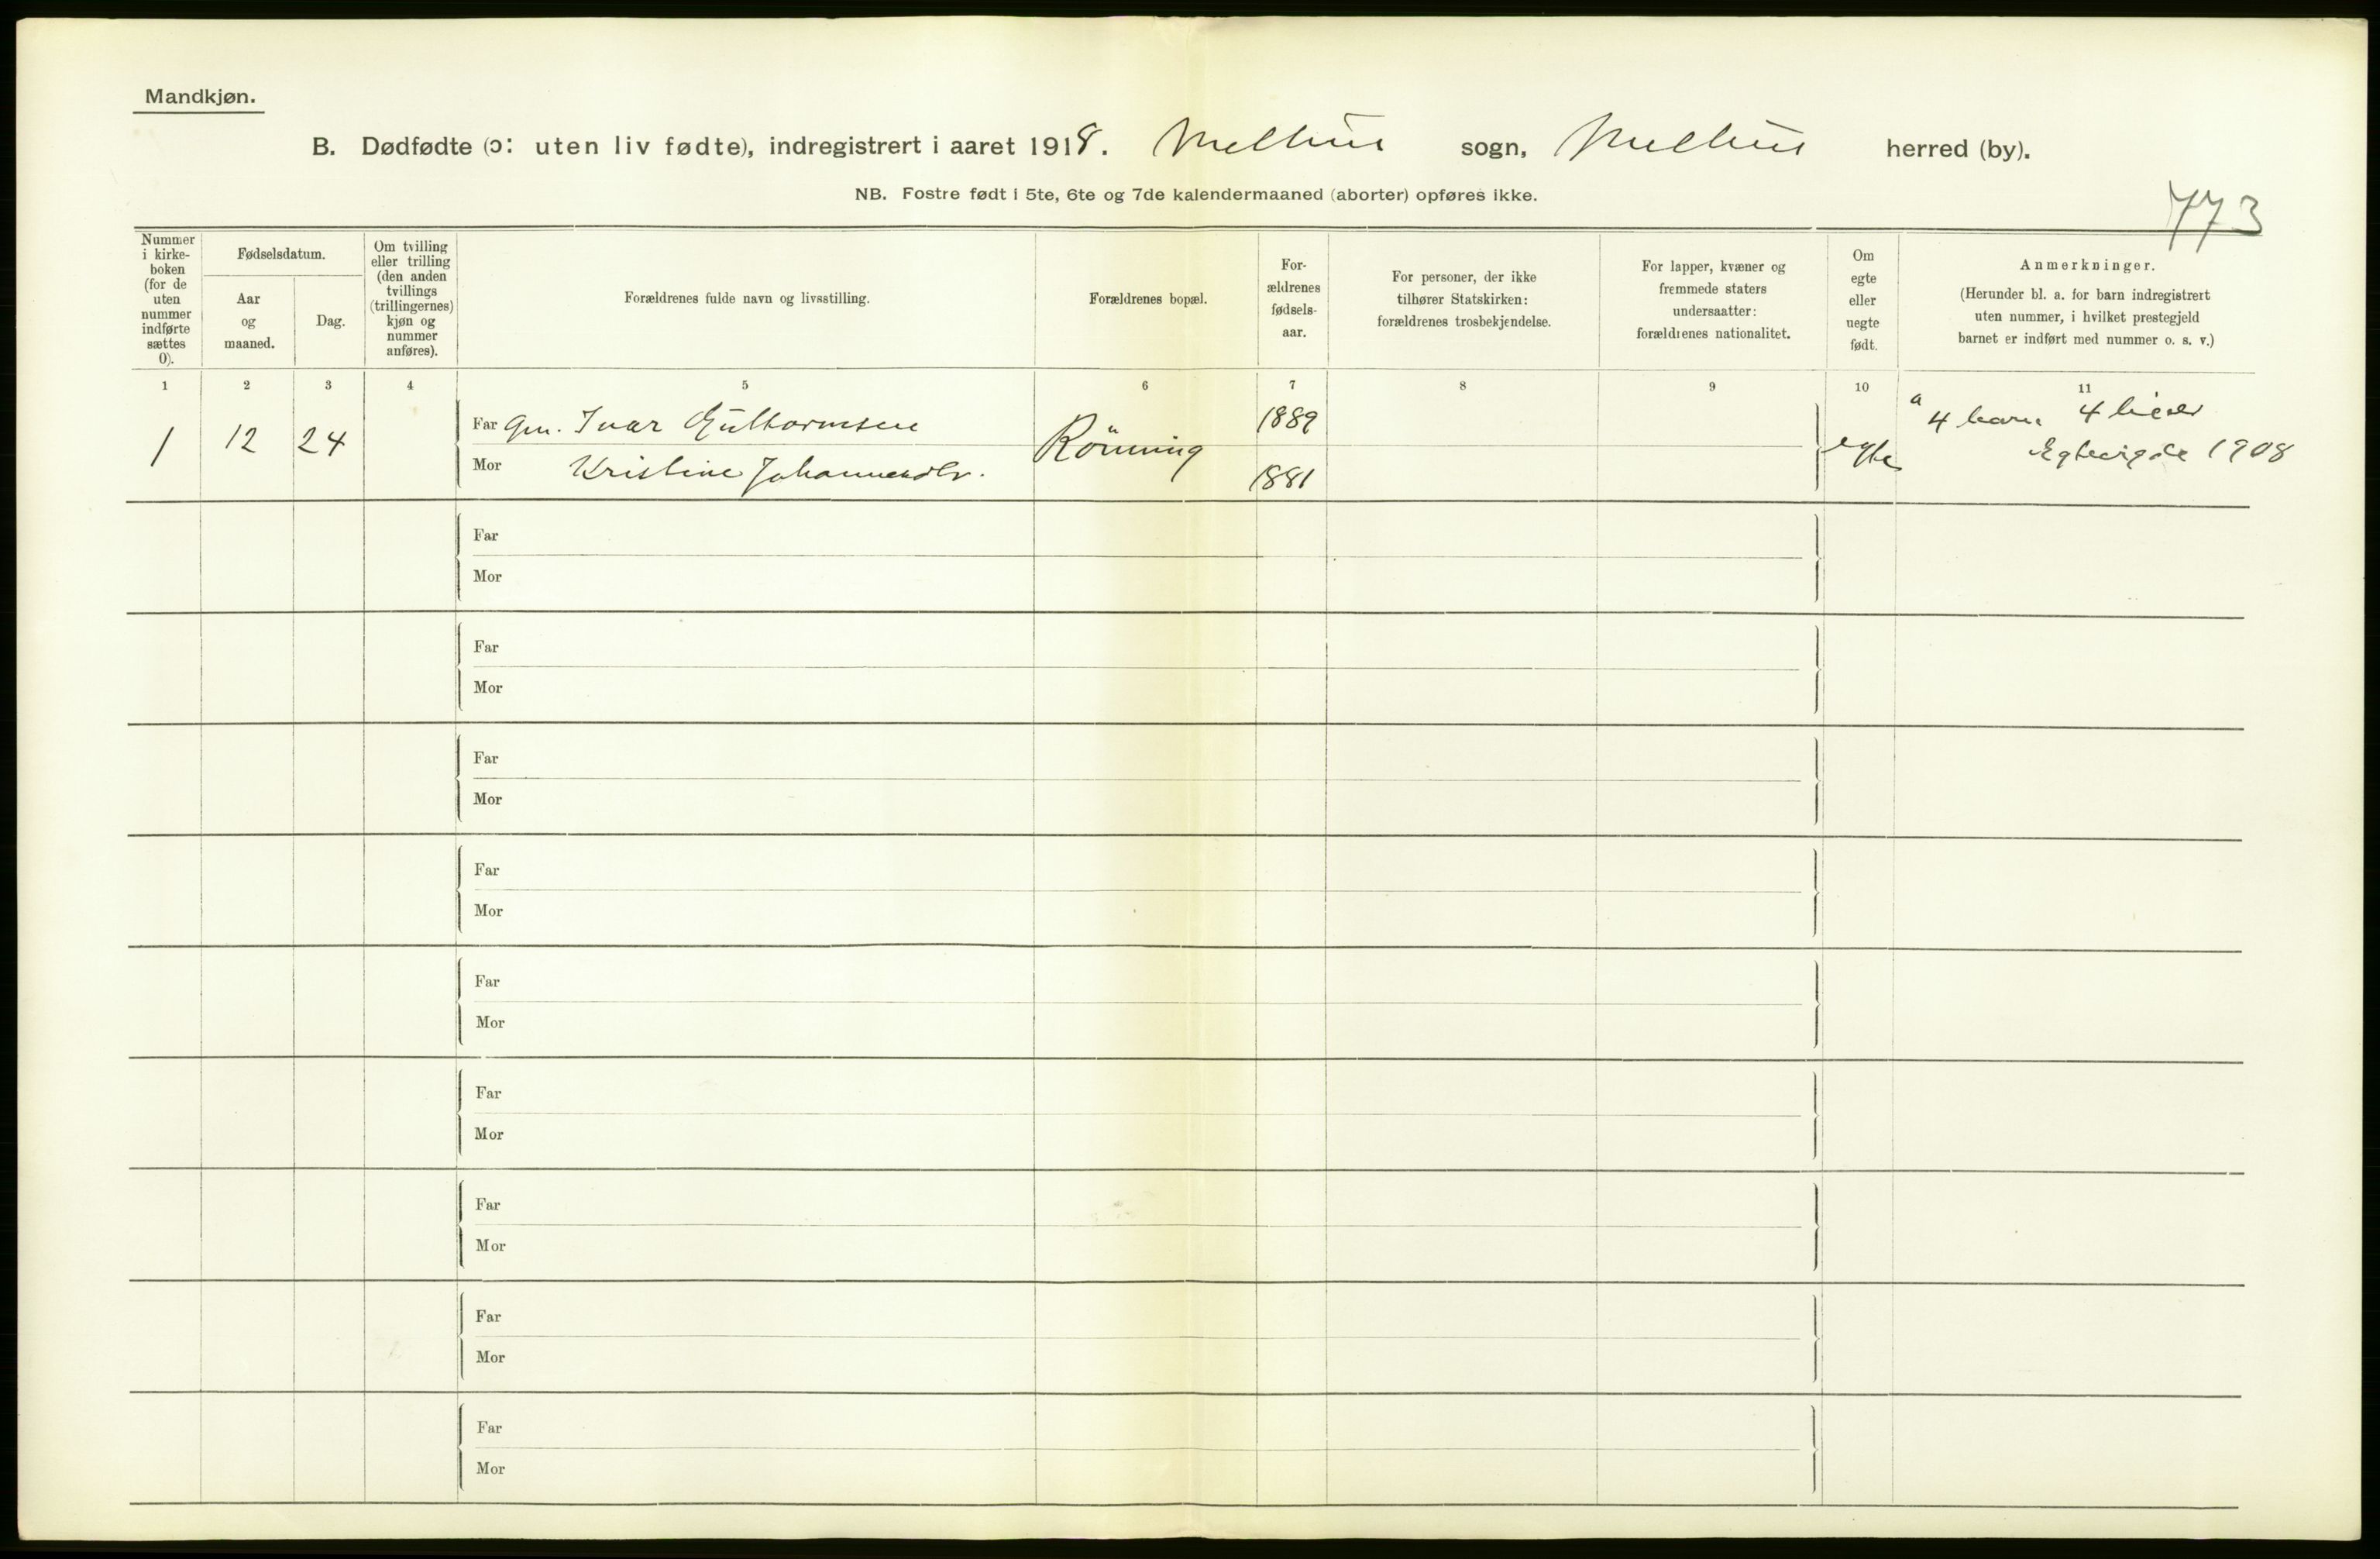 Mandkjøn.
B. Dødfødte (ɔ: uten liv fødte), indregistrert i aaret 1918. Melhus sogn, Melhus herred (by).
NB. Fostre født i 5te, 6te og 7de kalendermaaned (aborter) opføres ikke.
773
Nummer
i kirke-
boken
(for de
uten
nummer
indførte
sættes
0).
Fødselsdatum.
Aar
og
maaned.
Dag.
Om tvilling
eller trilling
(den anden
tvillings
(trillingernes)
kjøn og
nummer
anføres).
Forældrenes fulde navn og livsstilling.
Forældrenes bopæl.
For-
ældrenes
fødsels-
aar.
For personer, der ikke
tilhører Statskirken:
forældrenes trosbekjendelse.
For lapper, kvæner og
fremmede staters
undersaatter:
forældrenes nationalitet.
Om
egte
eller
uegte
født.
Anmerkninger.
(Herunder bl. a. for barn indregistrert
uten nummer, i hvilket prestegjeld
barnet er indført med nummer o. s. v.)
1 2 3 4 5 6 7 8 9 10 11
1 12 24 Far Gm. Ivar Guttormsen Rönning 1889 egte a 4 barn 4 lever
Mor Kristine Johannesdtr. 1881 Egtevigde 1908
Far
Mor
Far
Mor
Far
Mor
Far
Mor
Far
Mor
Far
Mor
Far
Mor
Far
Mor
Far
Mor